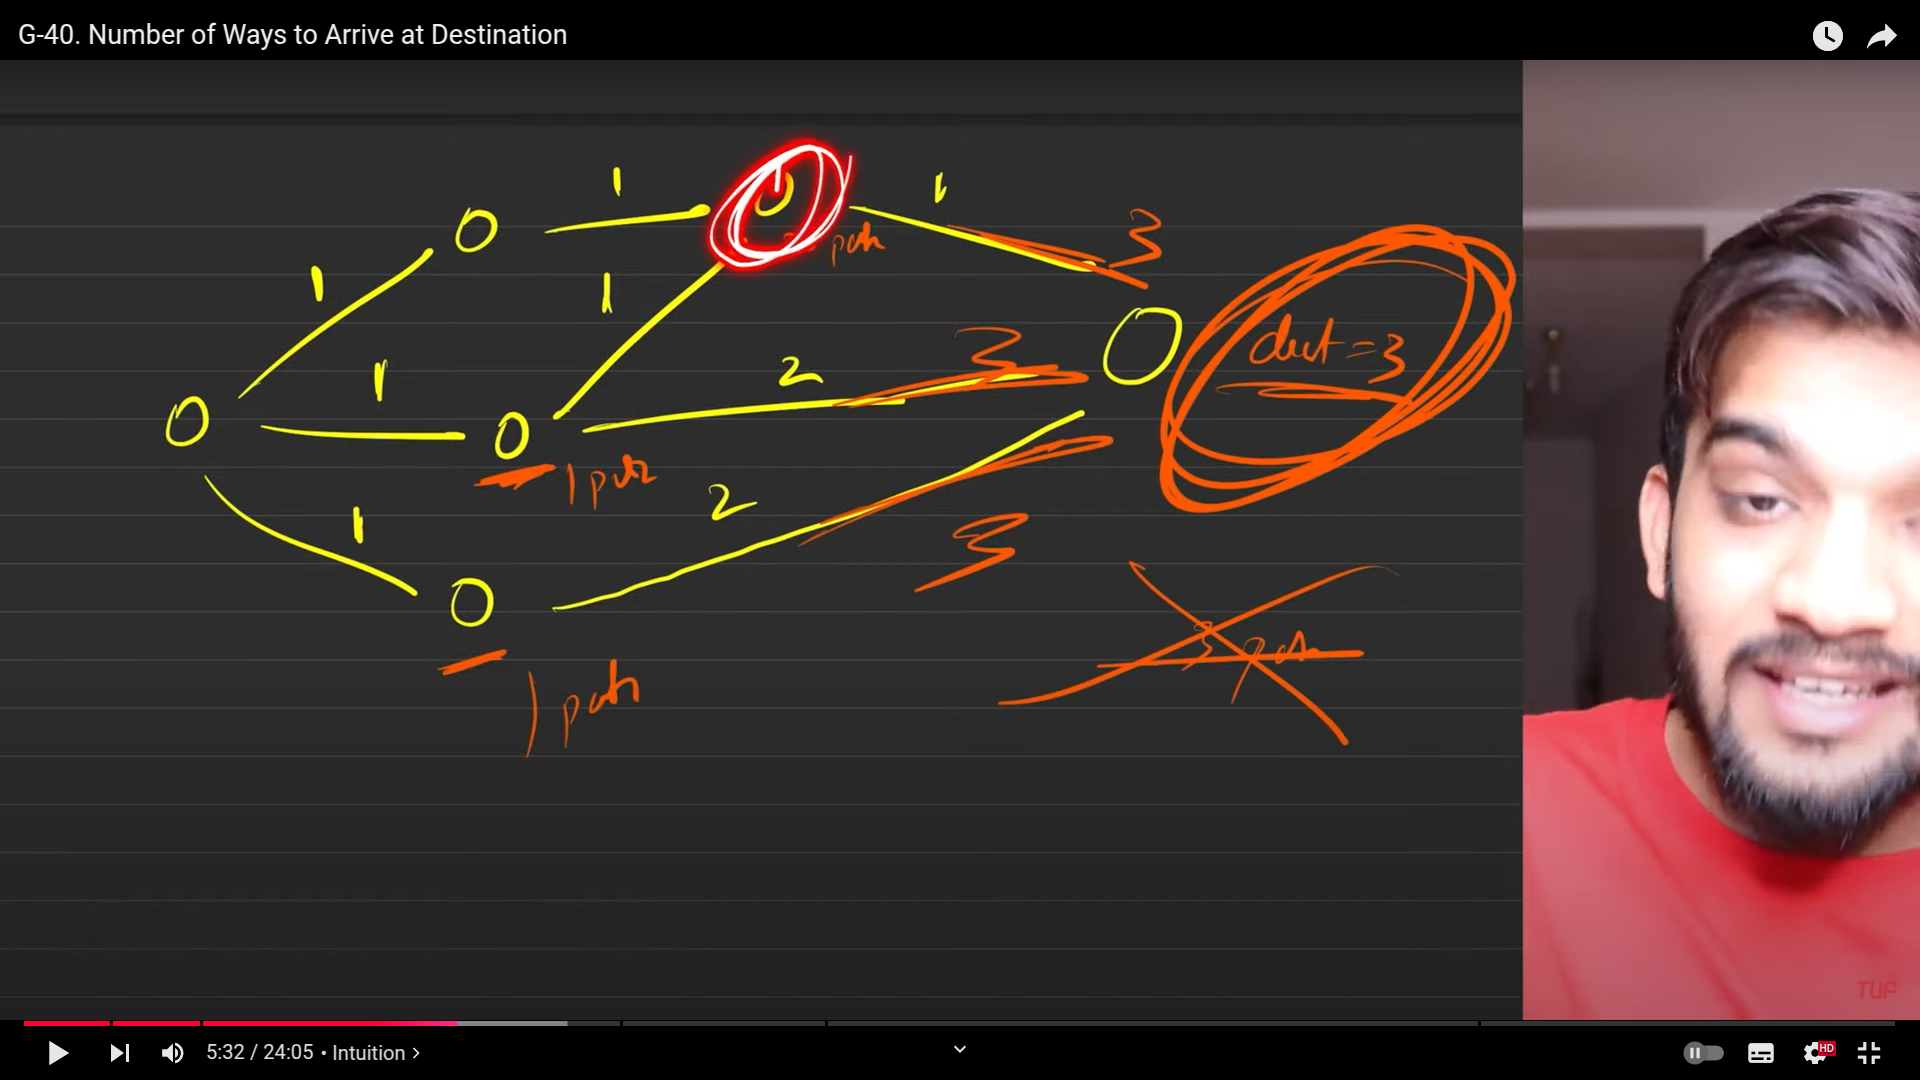 G-40. Number of Ways to Arrive at Destination
1
1
3
path
1
1
1
dist = 3
2
3
1 path
2
1
3
3 path
1 path
TUF
5:32 / 24:05 • Intuition >
HD